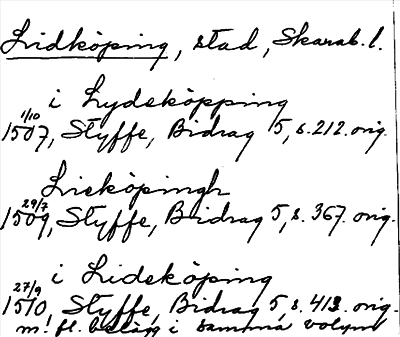 Lidköping, stad, Skarab. l.
i Lydeköpping
1/10
1507, Styffe, Bidrag 5, s. 212. orig.
Lieköpingh
29/7
1509, Styffe, Bidrag 5, s. 367. orig.
i Lideköping
27/9
1510, Styffe, Bidrag 5, s. 413. orig.
m. fl. belägg i samma volym